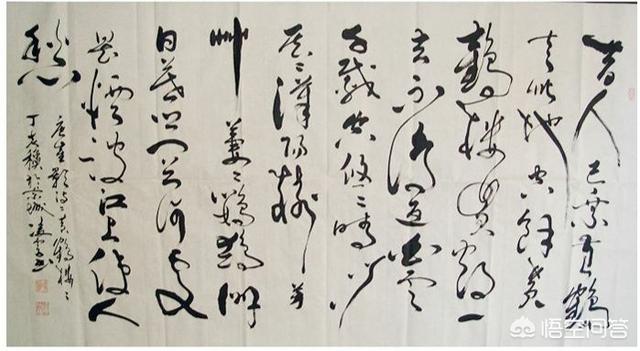 昔人已乘黄鹤
去此地空余黄
鹤楼黄鹤一
去不复返白云
千载空悠〻晴川
历〻汉阳树芳
草萋〻鹦鹉洲
日暮乡关何处
是烟波江上使人
愁
唐崔颢诗黄鹤楼
丁亥 於京城 书
悟空问答